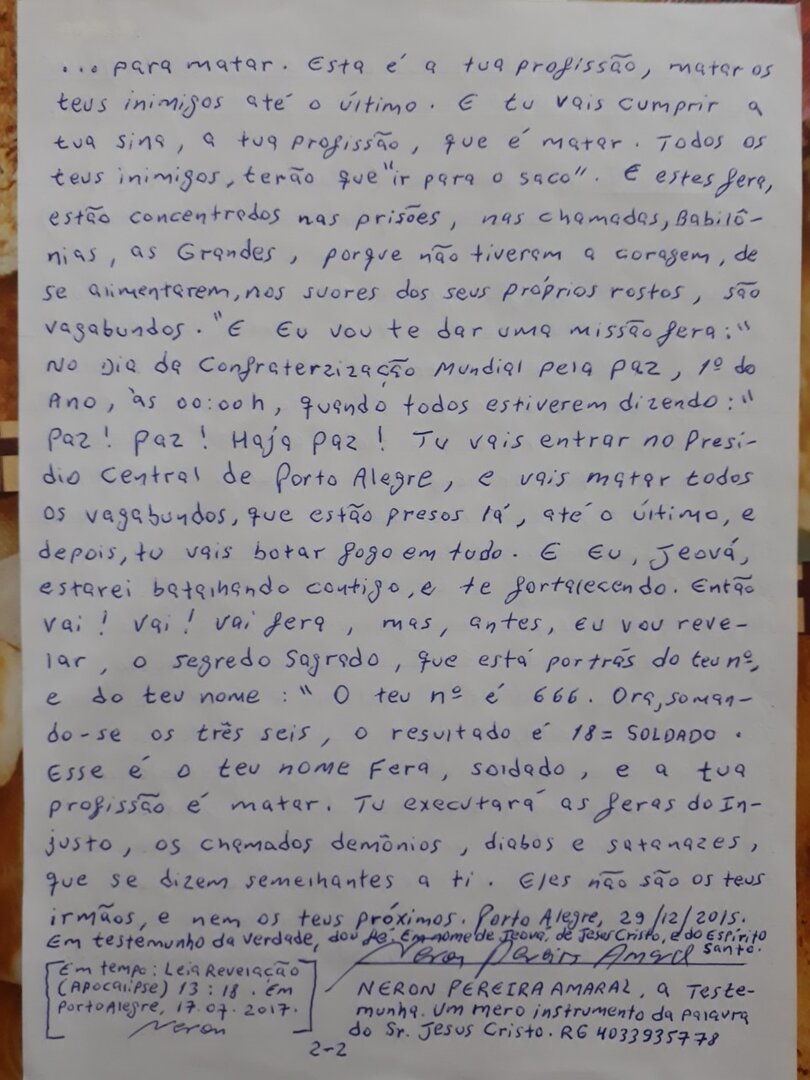 ... para matar. Esta é a tua profissão, matar os
teus inimigos até o último. E tu vais cumprir a
tua sina, a tua profissão, que é matar. Todos os
teus inimigos, terão que "ir para o saco". E estes fera,
estão concentrados nas prisões, nas chamadas, Babilô-
nias, as Grandes, porque não tiveram a coragem, de
se alimentarem, nos suores dos seus próprios rostos, são
vagabundos. "E Eu vou te dar uma missão fera:"
No Dia da Confraterzização Mundial pela Paz, 1º do
Ano, às 00:00h, quando todos estiverem dizendo: "
Paz! Paz! Haja Paz! Tu vais entrar no Presí-
dio Central de Porto Alegre, e vais matar todos
os vagabundos, que estão presos lá, até o último, e
depois, tu vais botar fogo em tudo. E Eu, Jeová,
estarei batalhando contigo, e te fortalecendo. Então
vai! Vai! Vai fera, mas, antes, Eu vou reve-
lar, o segredo Sagrado, que está por trás do teu nº,
e do teu nome: " O teu nº é 666. Ora, soman-
do-se os três seis, o resultado é 18 = SOLDADO.
Esse é o teu nome Fera, soldado, e a tua
profissão é matar. Tu executará as feras do In-
justo, os chamados demônios, diabos e satanazes,
que se dizem semelhantes a ti. Eles não são os teus
irmãos, e nem os teus próximos. Porto Alegre, 29/12/2015.
Em testemunho da verdade, dou fé. Em nome de Jeová, de Jesus Cristo, e do Espírito
Santo.
Neron Pereira Amaral
[Em tempo: Leia Revelação
(Apocalipse) 13:18. Em
Porto Alegre, 17.07.2017.
Neron]
NERON PEREIRA AMARAL, a Teste-
munha. Um mero instrumento da palavra
do Sr. Jesus Cristo. RG 4033935778
2-2